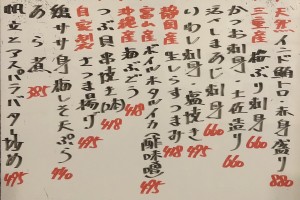 天然 インド鮪トロ・赤身盛り 880
三重産 梅ぶり刺身 660
かつお刺身 土佐造り 660
活〆しまあじ刺身 660
いわし刺身 塩焼き 495
静岡産 生しらすつまみ 495
富山産 ボイルホタルイカ(酢味噌) 495
沖縄産 海ぶどう 418
つぶ貝串焼き(1本) 418
自家製 さつま揚げ 495
鶏ササ身梅しそ天ぷら 440
あら煮 385
帆立とアスパラバター炒め 495